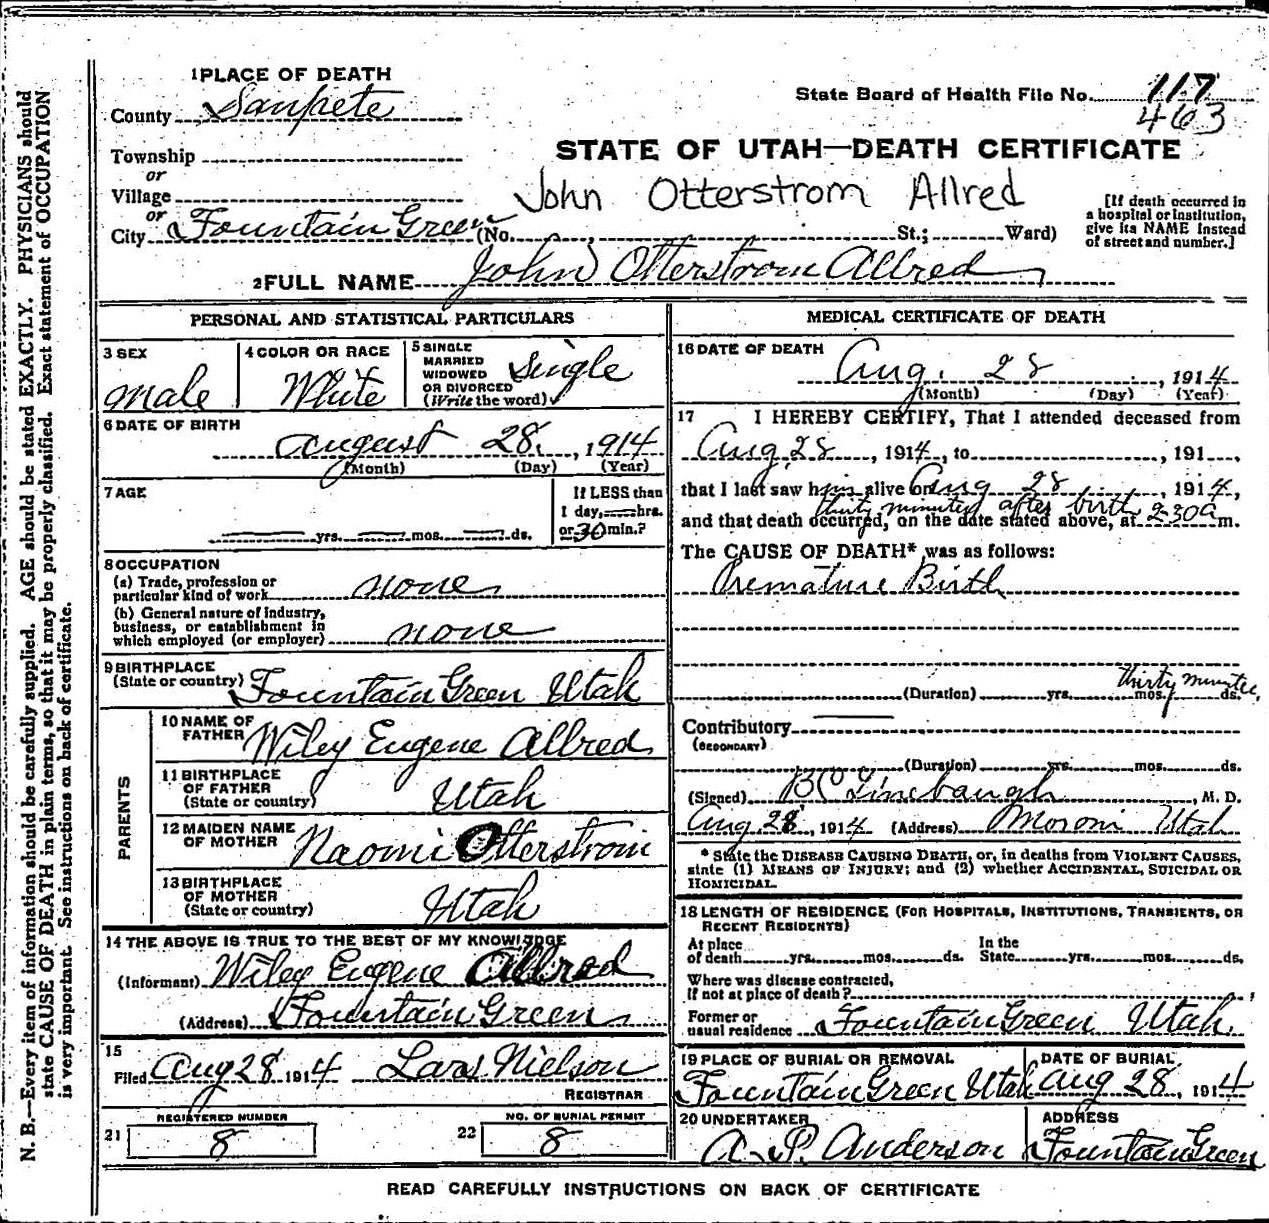 1 PLACE OF DEATH
County Sanpete
Township
or
Village
or
City Fountain Green (No. , St.; Ward)
State Board of Health File No. 117
463
STATE OF UTAH—DEATH CERTIFICATE
John Otterstrom Allred
[If death occurred in
a hospital or institution,
give its NAME instead
of street and number.]
2 FULL NAME John Otterstrom Allred
PERSONAL AND STATISTICAL PARTICULARS
3 SEX
Male
4 COLOR OR RACE
White
5 SINGLE
MARRIED
WIDOWED
OR DIVORCED
(Write the word)
Single
6 DATE OF BIRTH
August 28, 1914
(Month) (Day) (Year)
7 AGE
yrs. mos. ds.
If LESS than
1 day, hrs.
or 30 min.?
8 OCCUPATION
(a) Trade, profession or
particular kind of work none
(b) General nature of industry,
business, or establishment in
which employed (or employer) none
9 BIRTHPLACE
(State or country) Fountain Green Utah
PARENTS
10 NAME OF
FATHER Wiley Eugene Allred
11 BIRTHPLACE
OF FATHER
(State or country) Utah
12 MAIDEN NAME
OF MOTHER Naomi Otterstrom
13 BIRTHPLACE
OF MOTHER
(State or country) Utah
14 THE ABOVE IS TRUE TO THE BEST OF MY KNOWLEDGE
(Informant) Wiley Eugene Allred
(Address) Fountain Green
15
Filed Aug 28 1914 Lars Nielson
REGISTRAR
REGISTERED NUMBER
21 8
NO. OF BURIAL PERMIT
22 8
MEDICAL CERTIFICATE OF DEATH
16 DATE OF DEATH
Aug. 28, 1914
(Month) (Day) (Year)
17 I HEREBY CERTIFY, That I attended deceased from
Aug. 28, 1914, to , 191 ,
that I last saw him alive on Aug 28, 1914,
thirty minutes after birth
and that death occurred, on the date stated above, at 2 30 a m.
The CAUSE OF DEATH* was as follows:
Premature Birth
thirty minutes
(Duration) yrs. mos. ds.
Contributory
(SECONDARY)
(Duration) yrs. mos. ds.
(Signed) B C Linebaugh, M. D.
Aug 28, 1914 (Address) Moroni Utah
* State the DISEASE CAUSING DEATH, or, in deaths from VIOLENT CAUSES,
state (1) MEANS OF INJURY; and (2) whether ACCIDENTAL, SUICIDAL OR
HOMICIDAL.
18 LENGTH OF RESIDENCE (FOR HOSPITALS, INSTITUTIONS, TRANSIENTS, OR
RECENT RESIDENTS)
At place In the
of death yrs. mos. ds. State yrs. mos. ds.
Where was disease contracted,
If not at place of death?
Former or
usual residence Fountain Green Utah.
19 PLACE OF BURIAL OR REMOVAL
Fountain Green Utah
DATE OF BURIAL
Aug 28, 1914
20 UNDERTAKER
A. P. Anderson
ADDRESS
Fountain Green
READ CAREFULLY INSTRUCTIONS ON BACK OF CERTIFICATE
N. B.—Every item of information should be carefully supplied. AGE should be stated EXACTLY. PHYSICIANS should
state CAUSE OF DEATH in plain terms, so that it may be properly classified. Exact statement of OCCUPATION
is very important. See instructions on back of certificate.